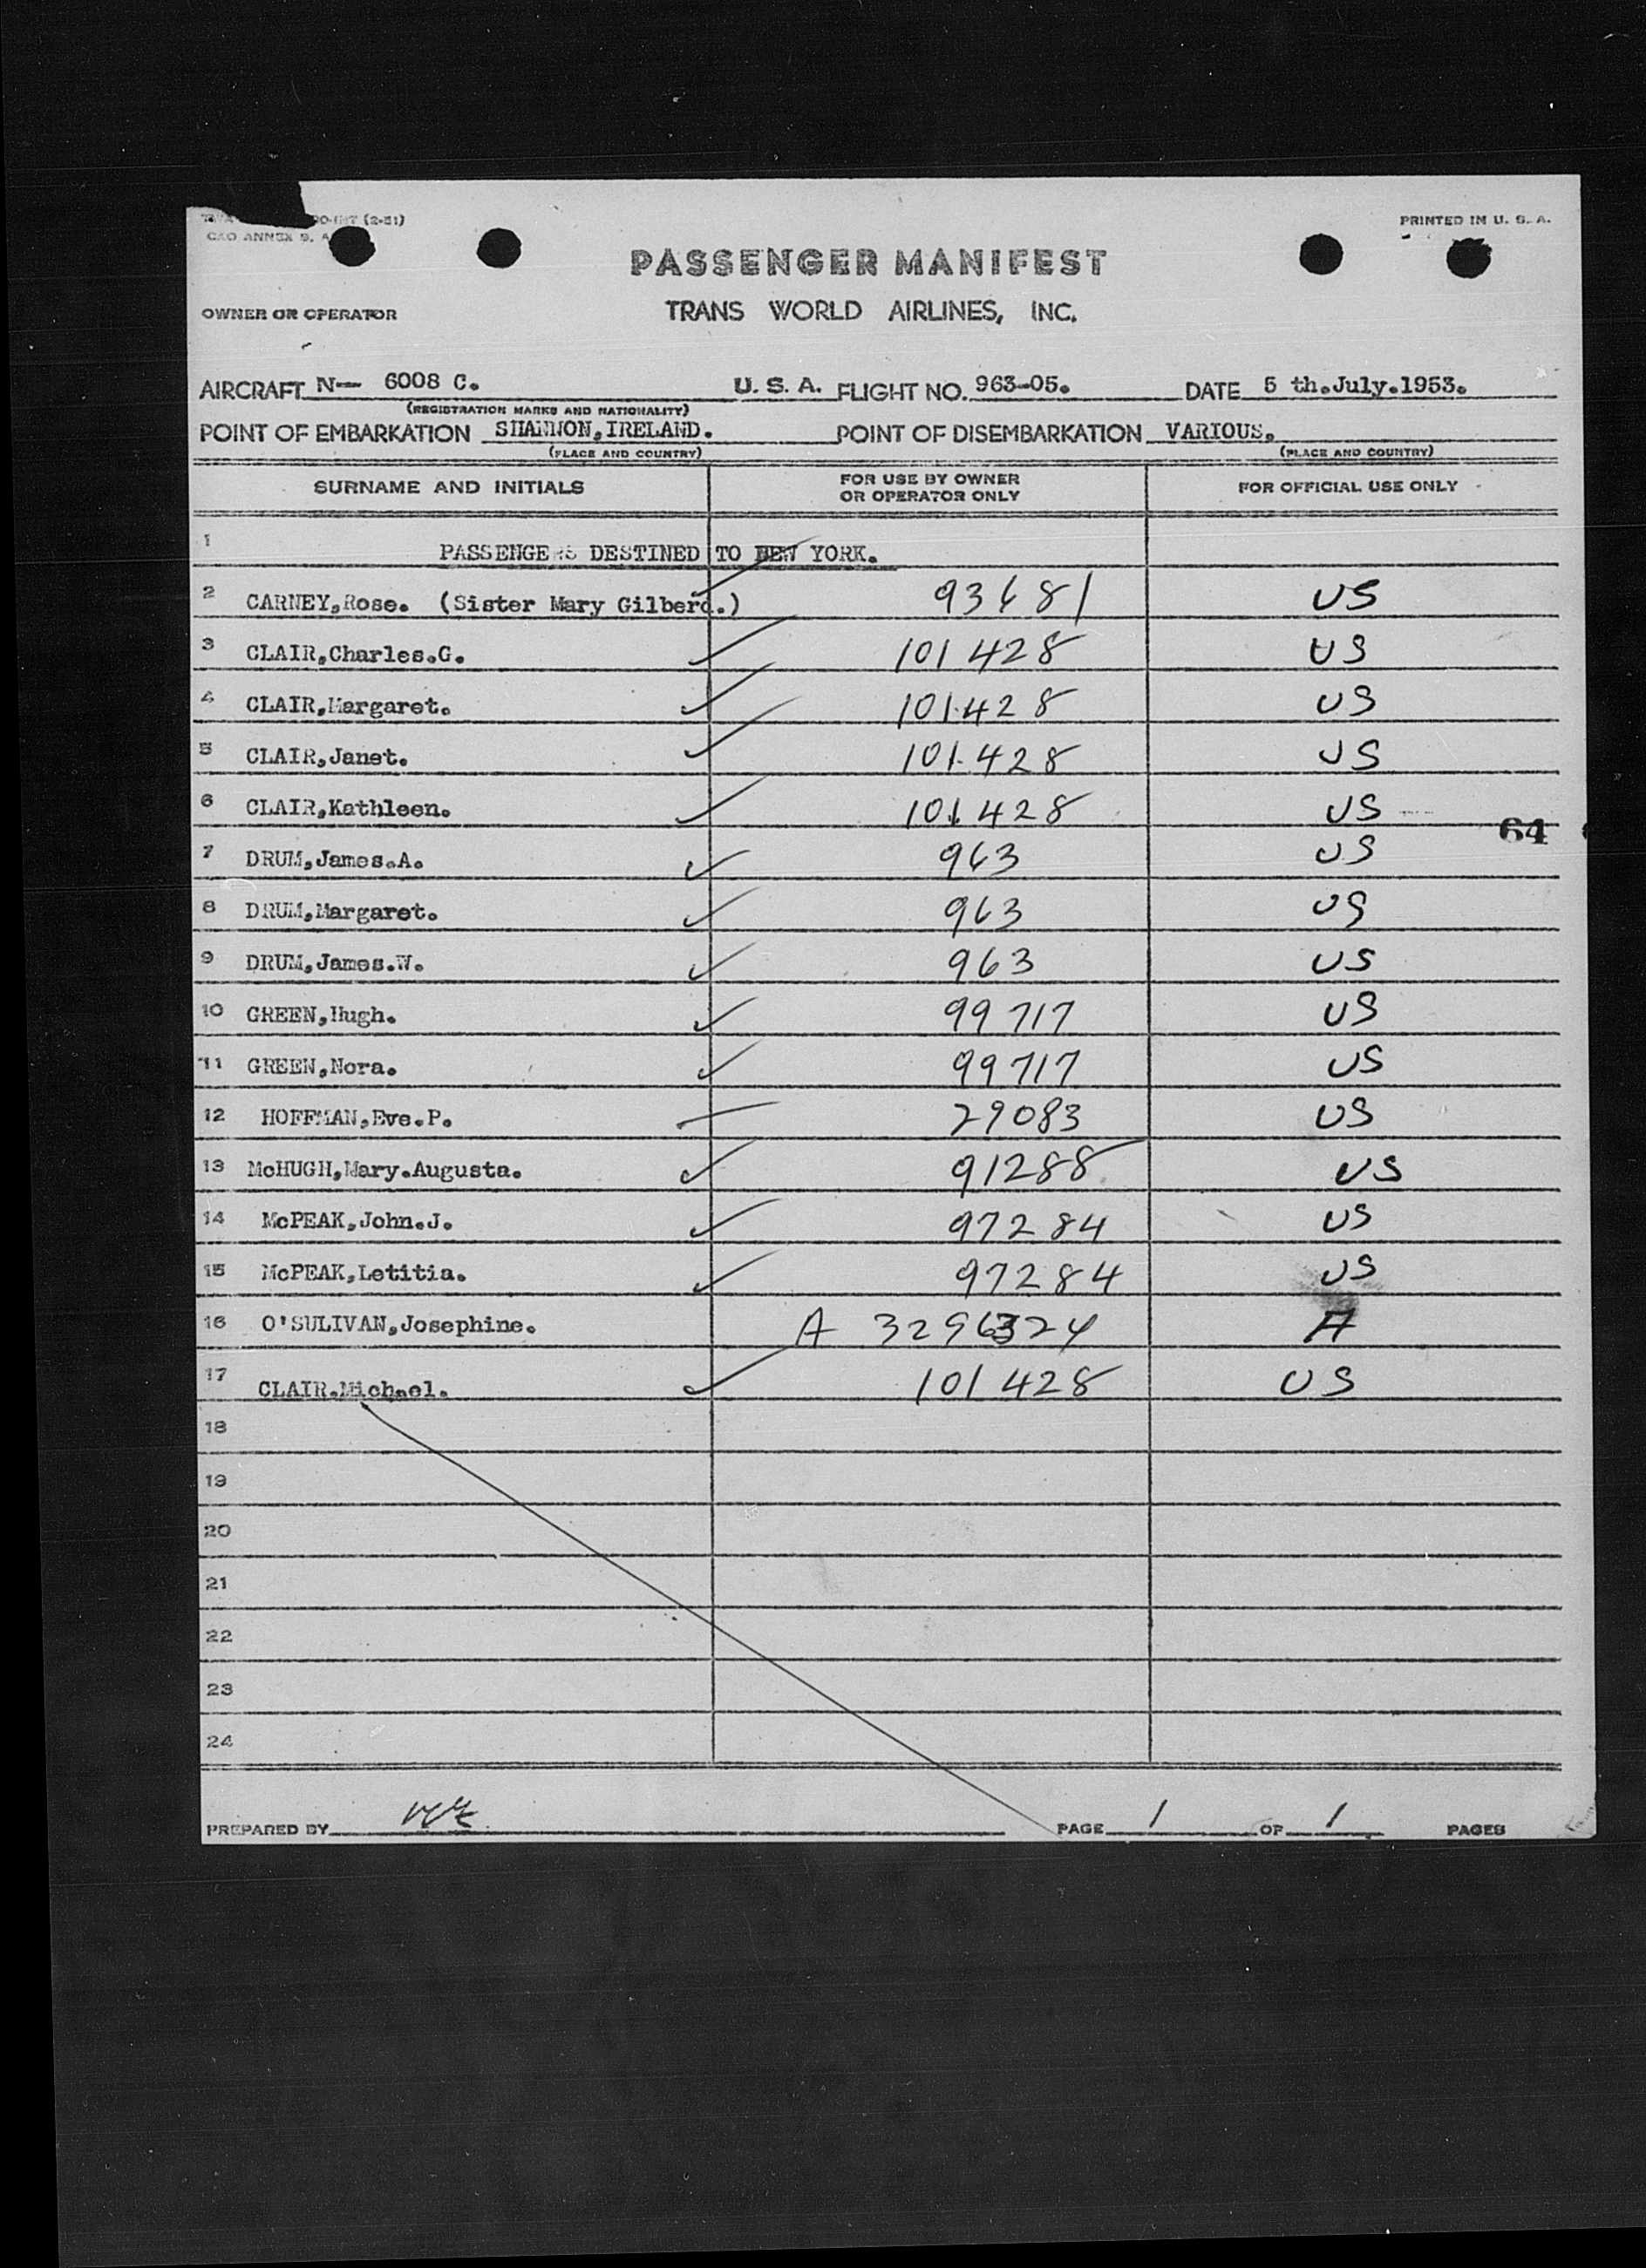 (2-51)
PRINTED IN U. S. A.
CAO ANNEX 9, A
PASSENGER MANIFEST
OWNER OR OPERATOR
TRANS WORLD AIRLINES, INC.
AIRCRAFT N— 6008 C. U. S. A. FLIGHT NO. 963-05. DATE 5 th.July.1953.
(REGISTRATION MARKS AND NATIONALITY)
POINT OF EMBARKATION SHANNON,IRELAND. POINT OF DISEMBARKATION VARIOUS.
(PLACE AND COUNTRY) (PLACE AND COUNTRY)
SURNAME AND INITIALS FOR USE BY OWNER OR OPERATOR ONLY FOR OFFICIAL USE ONLY
1 PASSENGERS DESTINED TO NEW YORK.
2 CARNEY,Rose. (Sister Mary Gilberd.) 93681 US
3 CLAIR,Charles.G. 101428 US
4 CLAIR,Margaret. 101428 US
5 CLAIR,Janet. 101428 US
6 CLAIR,Kathleen. 101428 US
64
7 DRUM,James.A. 963 US
8 DRUM,Margaret. 963 US
9 DRUM,James.W. 963 US
10 GREEN,Hugh. 99717 US
11 GREEN,Nora. 99717 US
12 HOFFMAN,Eve.P. 29083 US
13 McHUGH,Mary.Augusta. 91288 US
14 McPEAK,John.J. 97284 US
15 McPEAK,Letitia. 97284 US
16 O'SULIVAN,Josephine. A 3296324 A
17 CLAIR.Michael. 101428 US
18
19
20
21
22
23
24
PREPARED BY PAGE 1 OF 1 PAGES